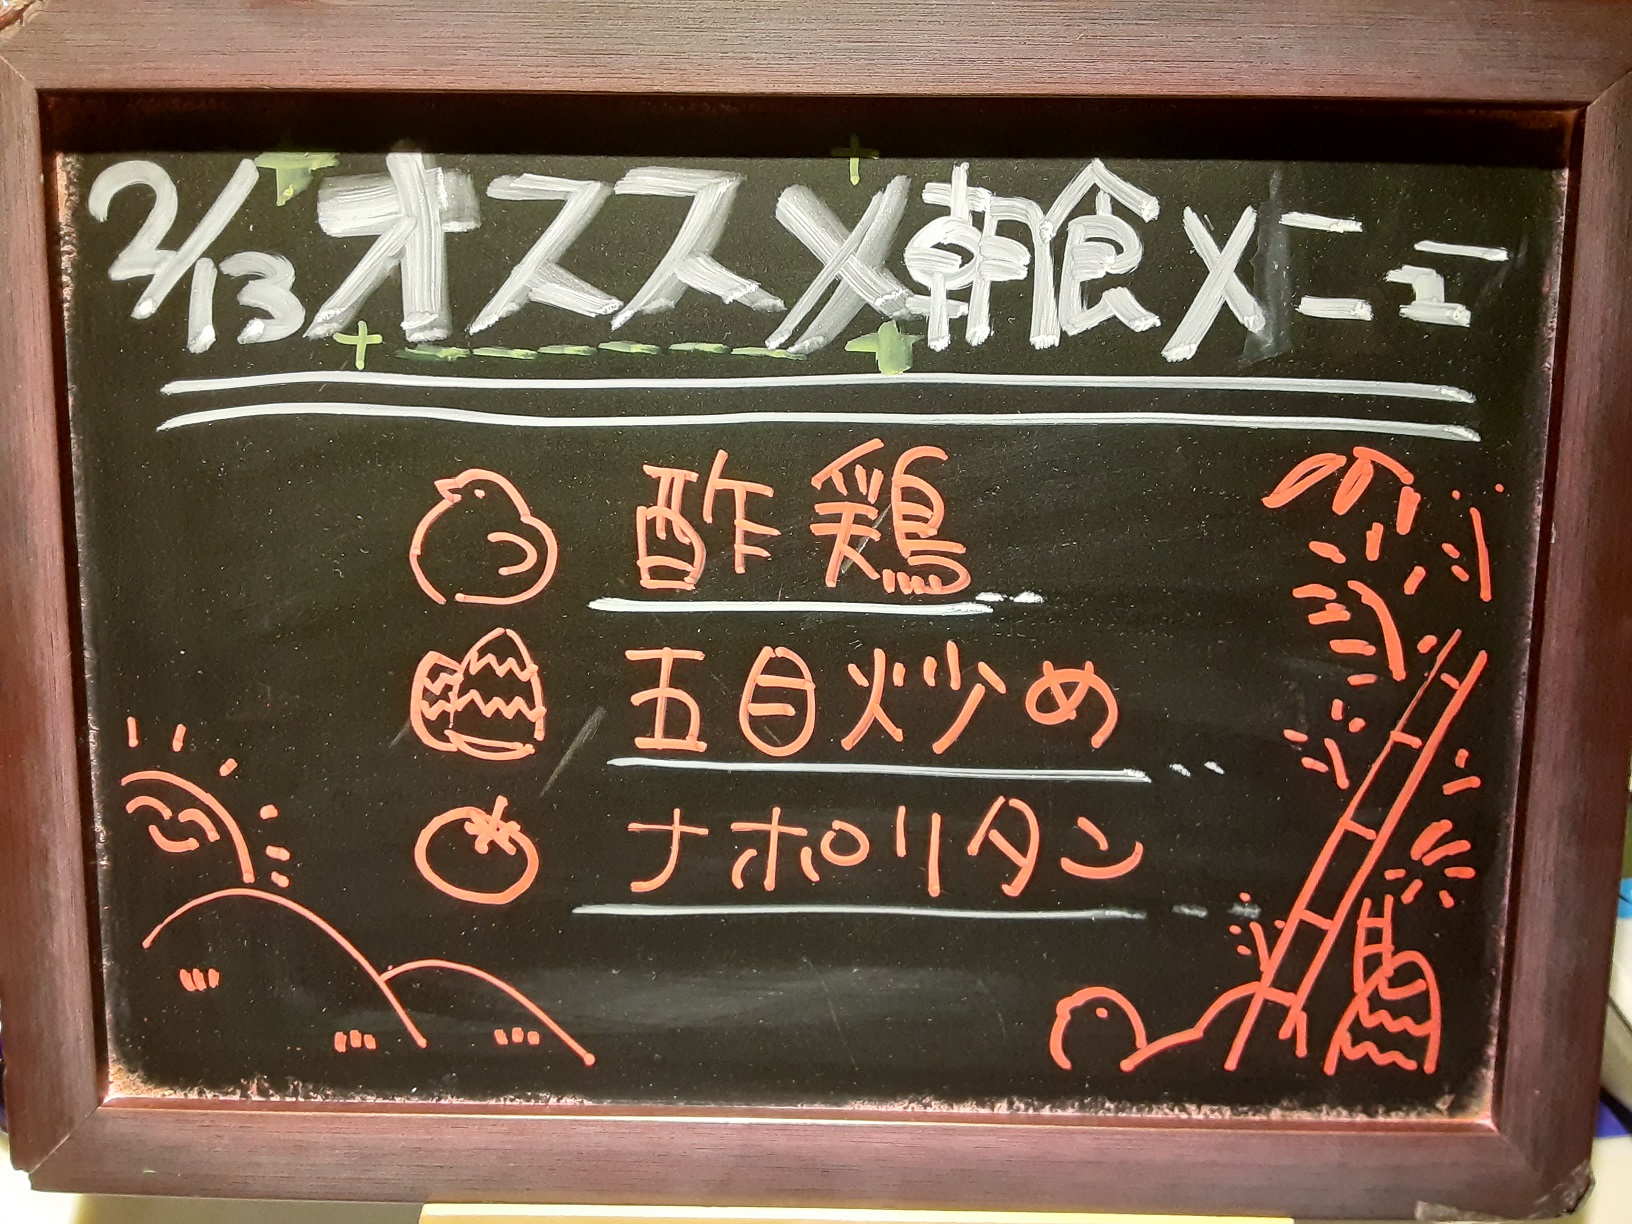 2/13 オススメ朝食メニュー
酢鶏
五目炒め
ナポリタン